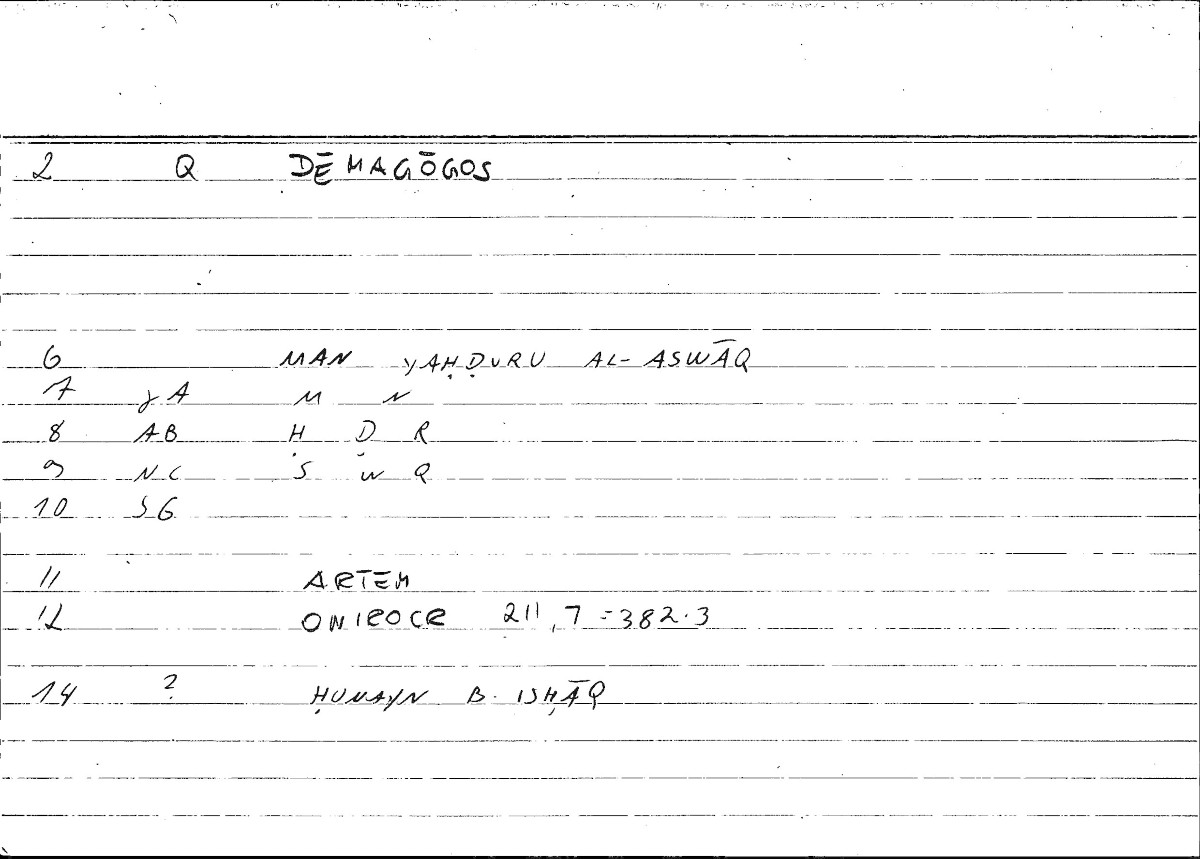 2 Q DĒMAGŌGOS
6 MAN YAḤḌURU AL-ASWĀQ
7 γA M N
8 AB Ḥ Ḍ R
9 NC S W Q
10 SG
11 ARTEM
12 ONIROCR 211,7=382.3
14 ? ḤUNAYN B. ISḤĀQ